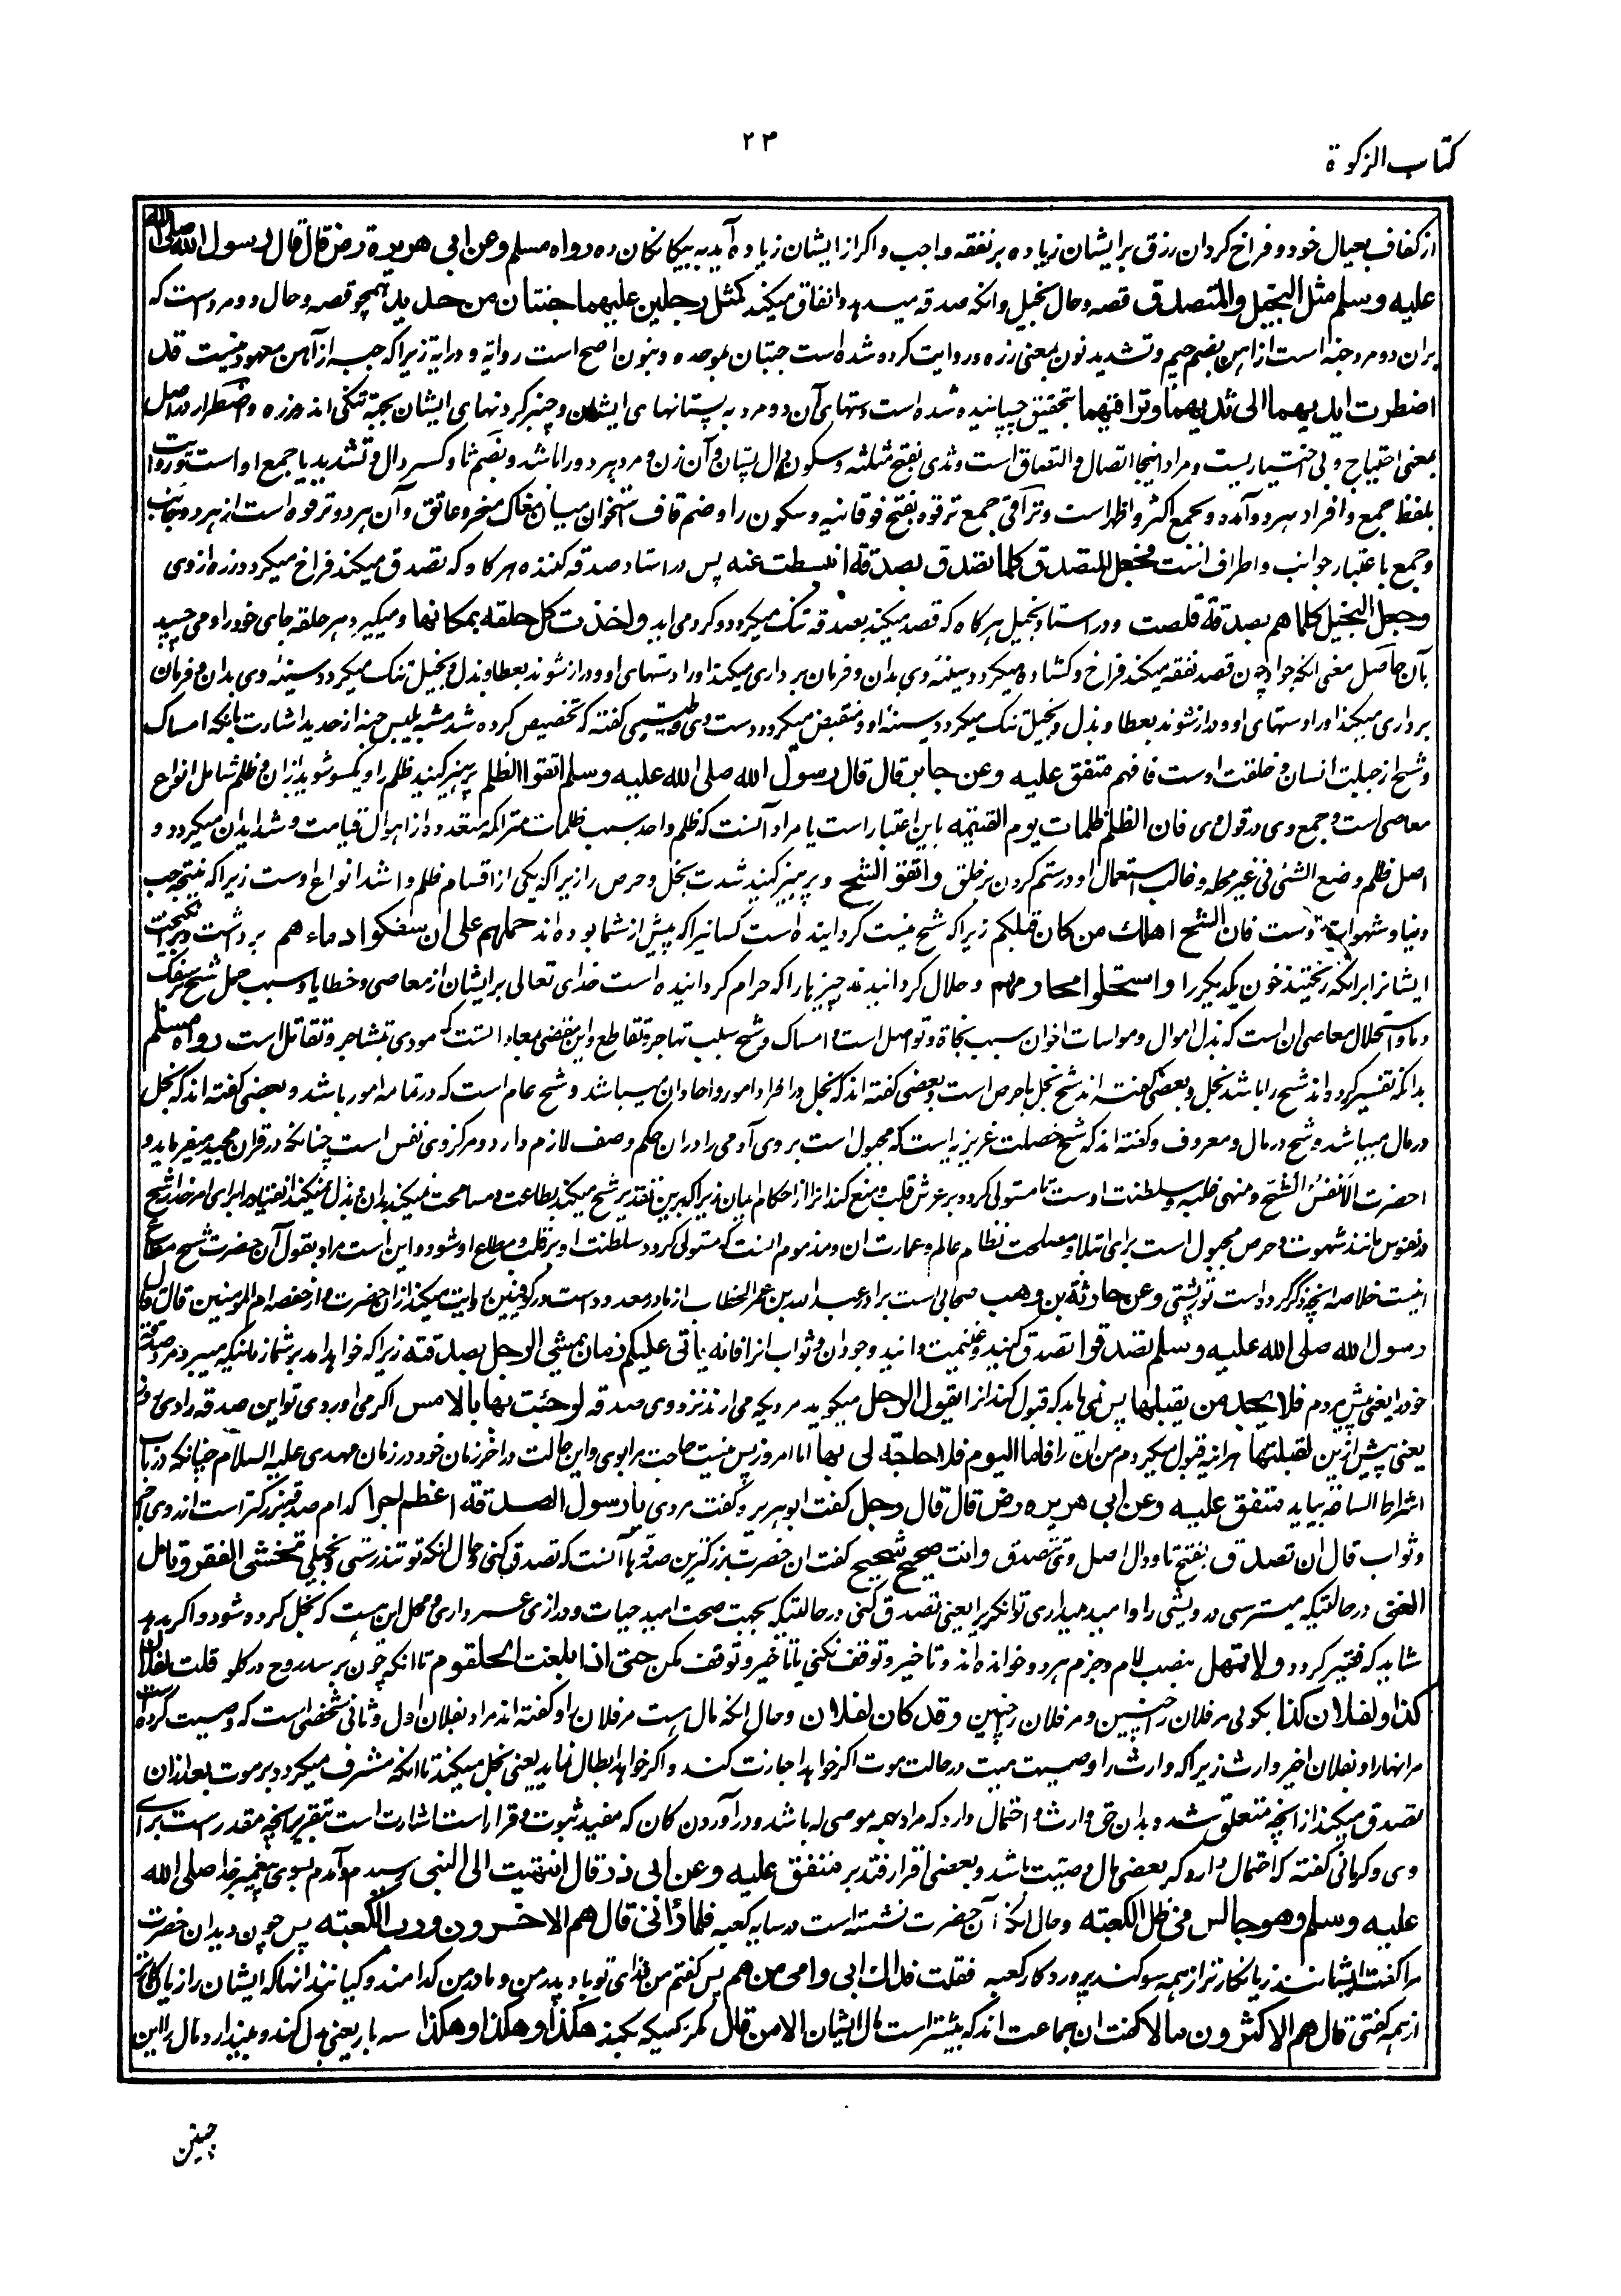 كتاب الزكوة
٢٣
از كفاف بعيال خود و فراخ كردان رزق بر ايشان زياده بر نفقه واجب و اكر از ايشان زياده آيد به بيكانكان ده رواه مسلم وعن ابى هريرة رض قال قال رسول الله صلى الله
عليه وسلم مثل البخيل والمتصدق قصه و حال بخيل و انكه صدقه ميدهد و انفاق ميكند كمثل رجلين عليهما جنتان من حديد همچو قصه و حال دو مرد ست كه
بران دو مرد جنه است از آهن بضم جيم و تشديد نون بمعنى زره و روايت كرده شده است جبتان بموحده و بنون اصح است رواية و دراية زيرا كه جبه از آهن معهود نيست قد
اضطرت ايديهما الى ثديهما وتراقيهما بتحقيق چسپانيده شده است دستهاى آن دو مرد به پستانهاى ايشان و چنبر كردنهاى ايشان بجهة تنكى اندرزره و اضطرار در اصل
بمعنى احتياج و بى اختياريست و مراد اينجا اتصال و التصاق است و ثدى بفتح مثلثه و سكون دال پستان و آن زن و مرد هر دو را باشد و بضم ثا و كسر دال و تشديد يا جمع او است و روايت
بلفظ جمع و افراد هر دو آمده و بجمع اكثر و اظهر است و تراقى جمع ترقوه بفتح فوقانيه و سكون را و ضم قاف استخوان ميان مغاك منحر و عاتق و آن هر دو ترقوه است از هر دو جانب
و جمع باعتبار جوانب و اطراف انست فجعل المتصدق كلما تصدق بصدقة انبسطت عنه پس در استاد صدقه كننده هر كاه كه تصدق ميكند فراخ ميكردد زره از وى
وجعل البخيل كلما هم بصدقة قلصت و در استاد بخيل هر كاه كه قصد ميكند بصدقه تنك ميكردد و كرد مى ايد واخذت كل حلقه بمكانها و ميكيرد هر حلقه جاى خود را و مى چسپد
بآن حاصل معنى انكه جواد چون قصد نفقه ميكند فراخ و كشاده ميكردد سينه وى بدان و فرمان بردارى ميكند اورا دستهاى او و دراز شوند بعطا و بذل و بخيل تنك ميكردد سينه وى بدان و فرمان
بردارى ميكند اورا دستهاى او و دراز شوند بعطا و بذل و بخيل تنك ميكردد سينه او و منقبض ميكردد دست وى و طيبى كفته كه تخصيص كرده شد مشبه بلبس جنه از حديد اشارت بانكه امساك
و شح از جبلت انسان و خلقت اوست فافهم متفق عليه وعن جابر قال قال رسول الله صلى الله عليه وسلم اتقوا الظلم پرهيز كنيد ظلم را و يكسو شويد ازان و ظلم شامل انواع
معاصى است و جمع وى در قول وى فان الظلم ظلمات يوم القيمة باين اعتبار است يا مراد آنست كه ظلم واحد سبب ظلمات متراكمه متعدده از اهوال قيامت و شدايدان ميكردد و
اصل ظلم وضع الشئى فى غير محله و غالب استعمال او در ستم كردن بر خلق واتقوا الشح و پرهيز كنيد شدت بخل و حرص را زيرا كه يكى از اقسام ظلم و اشد انواع اوست زيرا كه نتيجه حب
دنيا و شهوات اوست فان الشح اهلك من كان قبلكم زيرا كه شح نيست كردانيده است كسانيرا كه پيش از شما بوده اند حملهم على ان سفكوا دماءهم برداشت و برانكيخت
ايشانرا برانكه ريختند خون يكديكر را واستحلوا محارمهم و حلال كردانيدند چيزها را كه حرام كردانيده است خداى تعالى بر ايشان از معاصى و خطايا و سبب حمل شح بر سفك
دما و استحلال معاصى ان است كه بذل اموال و مواسات اخوان سبب نجاة و تواصل است و امساك و شح سبب تهاجر و تقاطع و اين مفضى بمعادا تست كه مودى بتشاجر و تقاتل است رواه مسلم
بدانكه تفسير كرده اند شح را باشد بخل و بعضى كفته اند شح بخل باحرص است و بعضى كفته اند كه بخل در افراد امور و احادان ميباشد و شح عام است كه در تمامه امور باشد و بعضى كفته اند كه بخل
در مال ميباشد و شح در مال و معروف و كفته اند كه شح خصلت غريزيه است كه مجبول است بر وى آدمى را دران حكم وصف لازم دارد و مركز وى نفس است چنانكه در قران مجيد ميفرمايد و
احضرت الانفس الشح و منهى غلبه و سلطنت اوست تا مستولى كردد بر عرش قلب و منع كند انرا از احكام ايمان
در نفوس مانند شهوت و حرص مجبول است براى ابتلا و مصلحت نظام عالم و عمارت ان و مذموم انست كه مستولى كردد سلطنت او بر قلب و مطاع او شود و اين است مراد بقول آن حضرت شح مطاع
اينست خلاصه انچه ذكر كرده است تورپشتى وعن حارثة بن وهب صحابى است برادر عبد الله بن عمر الخطاب از مادر معدود است در كوفيين روايت ميكند ازان حضرت و از حفصه ام المومنين قال قال
رسول الله صلى الله عليه وسلم تصدقوا تصدق كنيد و غنيمت دانيد وجود ان و ثواب انرا فانه ياتى عليكم زمان يمشى الرجل بصدقته زيرا كه خواهد امد بر شما زمانيكه ميبرد مرد صدقه
خود را يعنى پيش مردم فلا يجد من يقبلها پس نمى يابد كه قبول كند انرا يقول الرجل ميكويد مرديكه مى ارند نزد وى صدقه لو جئت بها بالامس اكر مى اوردى تو اين صدقه را دى روز
يعنى پيش ازين لقبلتها هرآينه قبول ميكردم من اين را فاما اليوم فلا حاجة لى بها اما امروز پس نيست حاجت مرا بوى و اين حالت در آخر زمان خود در زمان مهدى عليه السلام چنانكه در باب
اشراط الساعة بيايد متفق عليه وعن ابى هريره رض قال قال رجل كفت ابو هريره و كفت مردى يا رسول الصدقة اعظم اجرا كدام صدقه بزركتر است از روى مزد
و ثواب قال ان تصدق بفتح تا و دال اصل وى تتصدق وانت صحيح شحيح كفت ان حضرت بزركترين صدقها آنست كه تصدق كنى و حال انكه تو تندرستى و بخيلى تخشى الفقر وتامل
الغنى در حالتيكه ميترسى درويشى را و اميد ميدارى توانكريرا يعنى تصدق كنى در حالتيكه بجهت صحت اميد حيات و درازى عمر دارى و محل اين هست كه بخل كرده شود و اكر بدهد
شايد كه فقير كردد ولا تمهل بنصب لام و جزم هر دو خوانده اند و تاخير و توقف نكنى يا تاخير و توقف مكن حتى اذا بلغت الحلقوم تا انكه چون برسد روح در كلو قلت لفلان
كذا ولفلان كذا بكوئى مر فلان را چنين و مر فلان را چنين وقد كان لفلان و حال انكه مال هست مر فلان را و كفته اند مراد بفلان اول و ثانى شخصى است كه وصيت كرده است
مرانها را و بفلان اخير وارث زيرا كه وارث را وصيت ميت در حالت موت اكر خواهد اجازت كند و اكر خواهد ابطال نمايد يعنى بخل ميكند تا انكه مشرف ميكردد بر موت بعد ازان
تصدق ميكند از انچه متعلق شده بدان حق وارث و احتمال دارد كه مراد همه موصى له باشد و در آوردن كان كه مفيد ثبوت و قرار است اشارت است بتقرير انچه مقدر ست براے
وى و كرمانى كفته كه احتمال دارد كه بعضى مال وصيت باشد و بعضى اقرار فتدبر متفق عليه وعن ابى ذر قال انتهيت الى النبى رسيدم و آمدم بسوى پيغمبر خدا صلى الله
عليه وسلم وهو جالس فى ظل الكعبته و حال انكه آن حضرت نشسته است در سايه كعبه فلما رانى قال هم الاخسرون ورب الكعبته پس چون ديد ان حضرت
مرا كفت ايشانند زيانكار تر از همه سوكند بپروردكار كعبه فقلت فداك ابى وامى من هم پس كفتم من فداى تو باد پدر من و مادر من كدامند و كيانند انها كه ايشان را زيان كارتر
از همه كفتى قال هم الاكثرون مالا كفت ان جماعت اند كه بيشتر است مال ايشان الا من قال مكر كسيكه بكند هكذا وهكذا وهكذا سه بار يعنى بذل كند و بيندازد مال را اين
چنين